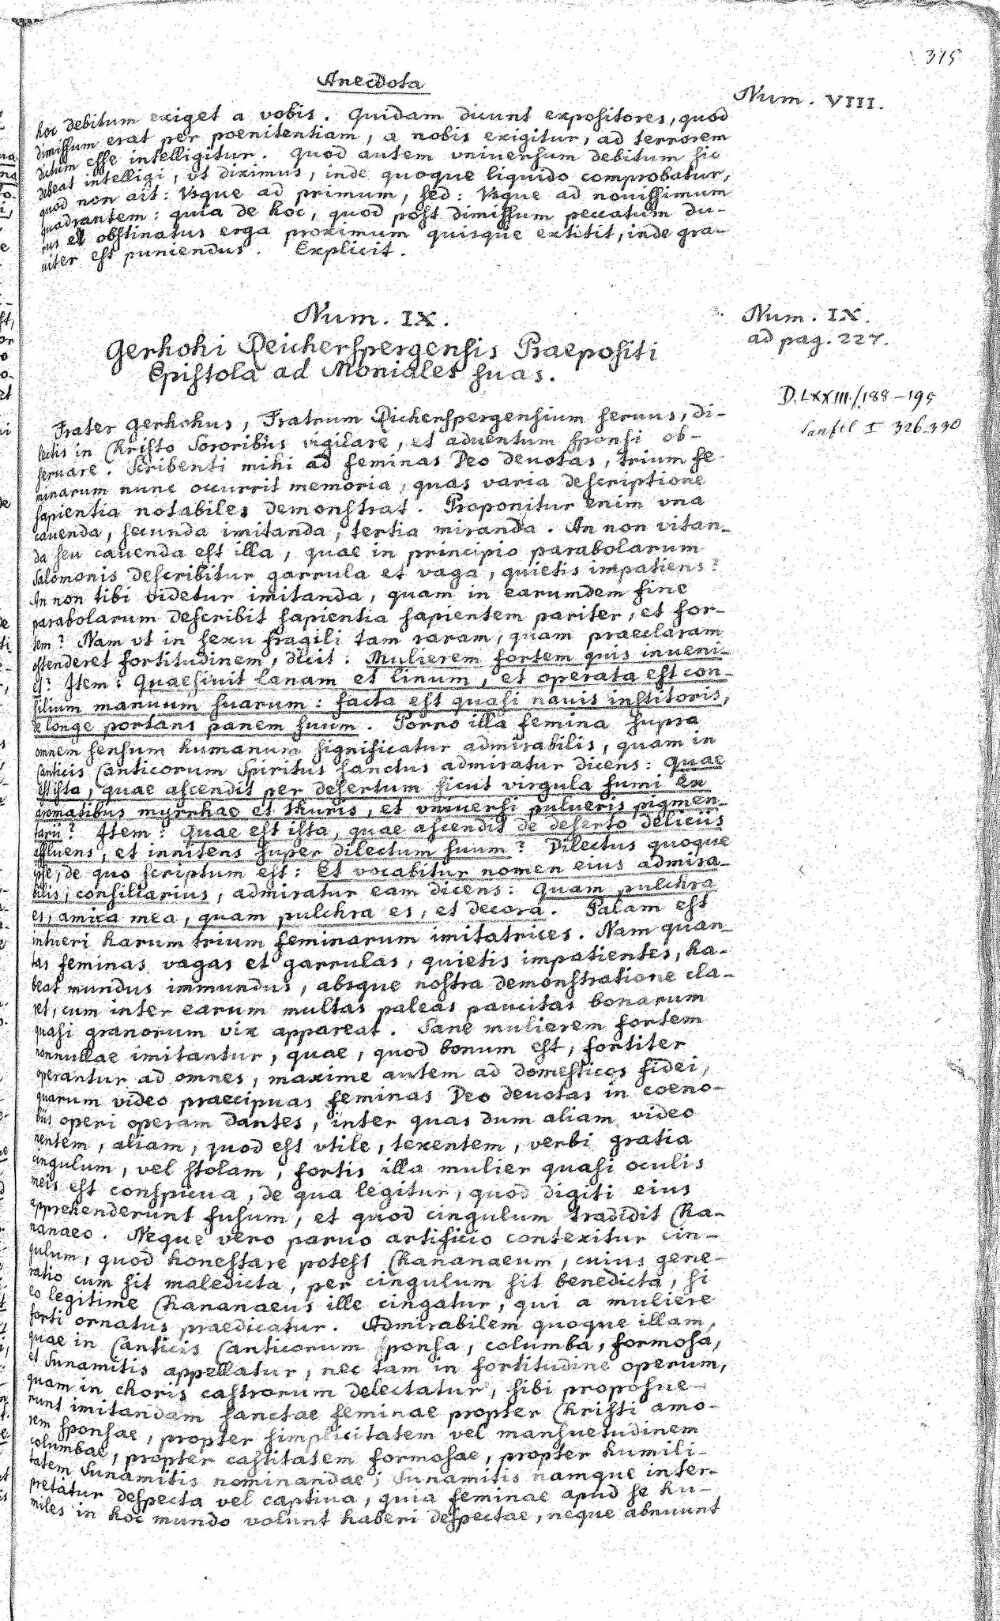 315
Anecdota
Num. VIII.
hoc debitum exiget a vobis. Quidam dicunt expositores, quod
dimissum erat per poenitentiam, a nobis exigitur, ad terrorem
dictum esse intelligitur. Quod autem vniuersum debitum sic
debeat intelligi, vt diximus, inde quoque liquido comprobatur,
quod non ait: Vsque ad primum, sed: Vsque ad nouissimum
quadrantem: quia de hoc, quod post dimissum peccatum du-
rus et obstinatus erga proximum quisque extitit, inde gra-
uiter est puniendus. Explicit.
Num. IX.
Gerhohi Reicherspergensis Praepositi
Epistola ad Moniales suas.
Num. IX.
ad pag. 227.
D. LXXIII/188-195
I 326-330
Frater Gerhohus, Fratrum Richerspergensium seruus, di-
lectis in Christo Sororibus vigilare, et aduentum sponsi ob-
seruare. Scribenti mihi ad feminas Deo deuotas, trium fe-
minarum nunc occurrit memoria, quas varia descriptione
sapientia notabiles demonstrat. Proponitur enim vna
cauenda, secunda imitanda, tertia miranda. An non vitan-
da seu cauenda est illa, quae in principio parabolarum
Salomonis describitur garrula et vaga, quietis impatiens?
An non tibi videtur imitanda, quam in earumdem fine
parabolarum describit sapientia sapientem pariter, et for-
tem? Nam vt in sexu fragili tam raram, quam praeclaram
ostenderet fortitudinem, dicit: Mulierem fortem quis inueni-
et? Item: Quaesiuit lanam et linum, et operata est con-
silium manuum suarum: facta est quasi nauis institoris,
de longe portans panem suum. Porro illa femina supra
omnem sensum humanum significatur admirabilis, quam in
Canticis Canticorum Spiritus sanctus admiratur dicens: Quae
est ista, quae ascendit per desertum sicut virgula fumi ex
aromatibus myrrhae et thuris, et vniuersi pulueris pigmen-
tarii? Item: Quae est ista, quae ascendit de deserto deliciis
affluens, et innitens super dilectum suum? Dilectus quoque
ipse, de quo scriptum est: Et vocabitur nomen eius admira-
bilis, consiliarius, admiratur eam dicens: Quam pulchra
es, amica mea, quam pulchra es, et decora. Palam est
intueri harum trium feminarum imitatrices. Nam quan-
tas feminas vagas et garrulas, quietis impatientes, ha-
beat mundus immundus, absque nostra demonstratione cla-
ret, cum inter earum multas paleas paucitas bonarum
quasi granorum vix appareat. Sane mulierem fortem
nonnullae imitantur, quae, quod bonum est, fortiter
operantur ad omnes, maxime autem ad domesticos fidei,
quarum video praecipuas feminas Deo deuotas in coeno-
biis operi operam dantes, inter quas dum aliam video
nentem, aliam, quod est vtile, texentem, verbi gratia
cingulum, vel stolam, fortis illa mulier quasi oculis
meis est conspicua, de qua legitur, quod digiti eius
apprehenderunt fusum, et quod cingulum tradidit Cha-
nanaeo. Neque vero paruo artificio contexitur cin-
gulum, quod honestare potest Chananaeum, cuius gene-
ratio cum sit maledicta, per cingulum sit benedicta, si
eo legitime Chananaeus ille cingatur, qui a muliere
forti ornatus praedicatur. Admirabilem quoque illam,
quae in Canticis Canticorum sponsa, columba, formosa,
et Sunamitis appellatur, nec tam in fortitudine operum,
quam in choris castrorum delectatur, sibi proposue-
runt imitandam sanctae feminae propter Christi amo-
rem sponsae, propter simplicitatem vel mansuetudinem
columbae, propter castitatem formosae, propter humili-
tatem Sunamitis nominandae; Sunamitis namque inter-
pretatur despecta vel captiua, quia feminae apud se hu-
miles in hoc mundo volunt haberi despectae, neque abnuunt